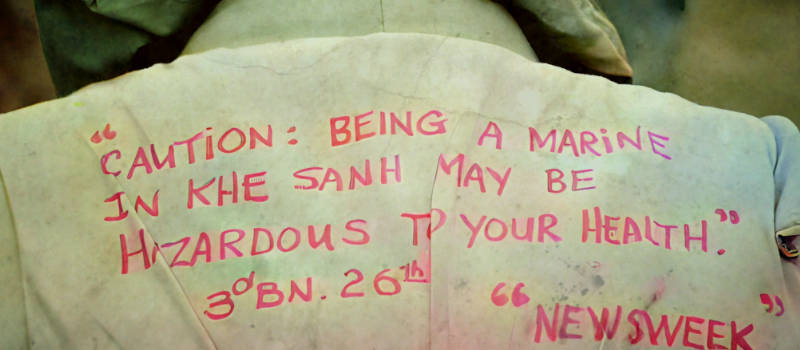 “CAUTION: BEING A MARINE
IN KHE SANH MAY BE
HAZARDOUS TO YOUR HEALTH.”
3d BN. 26th
“NEWSWEEK”